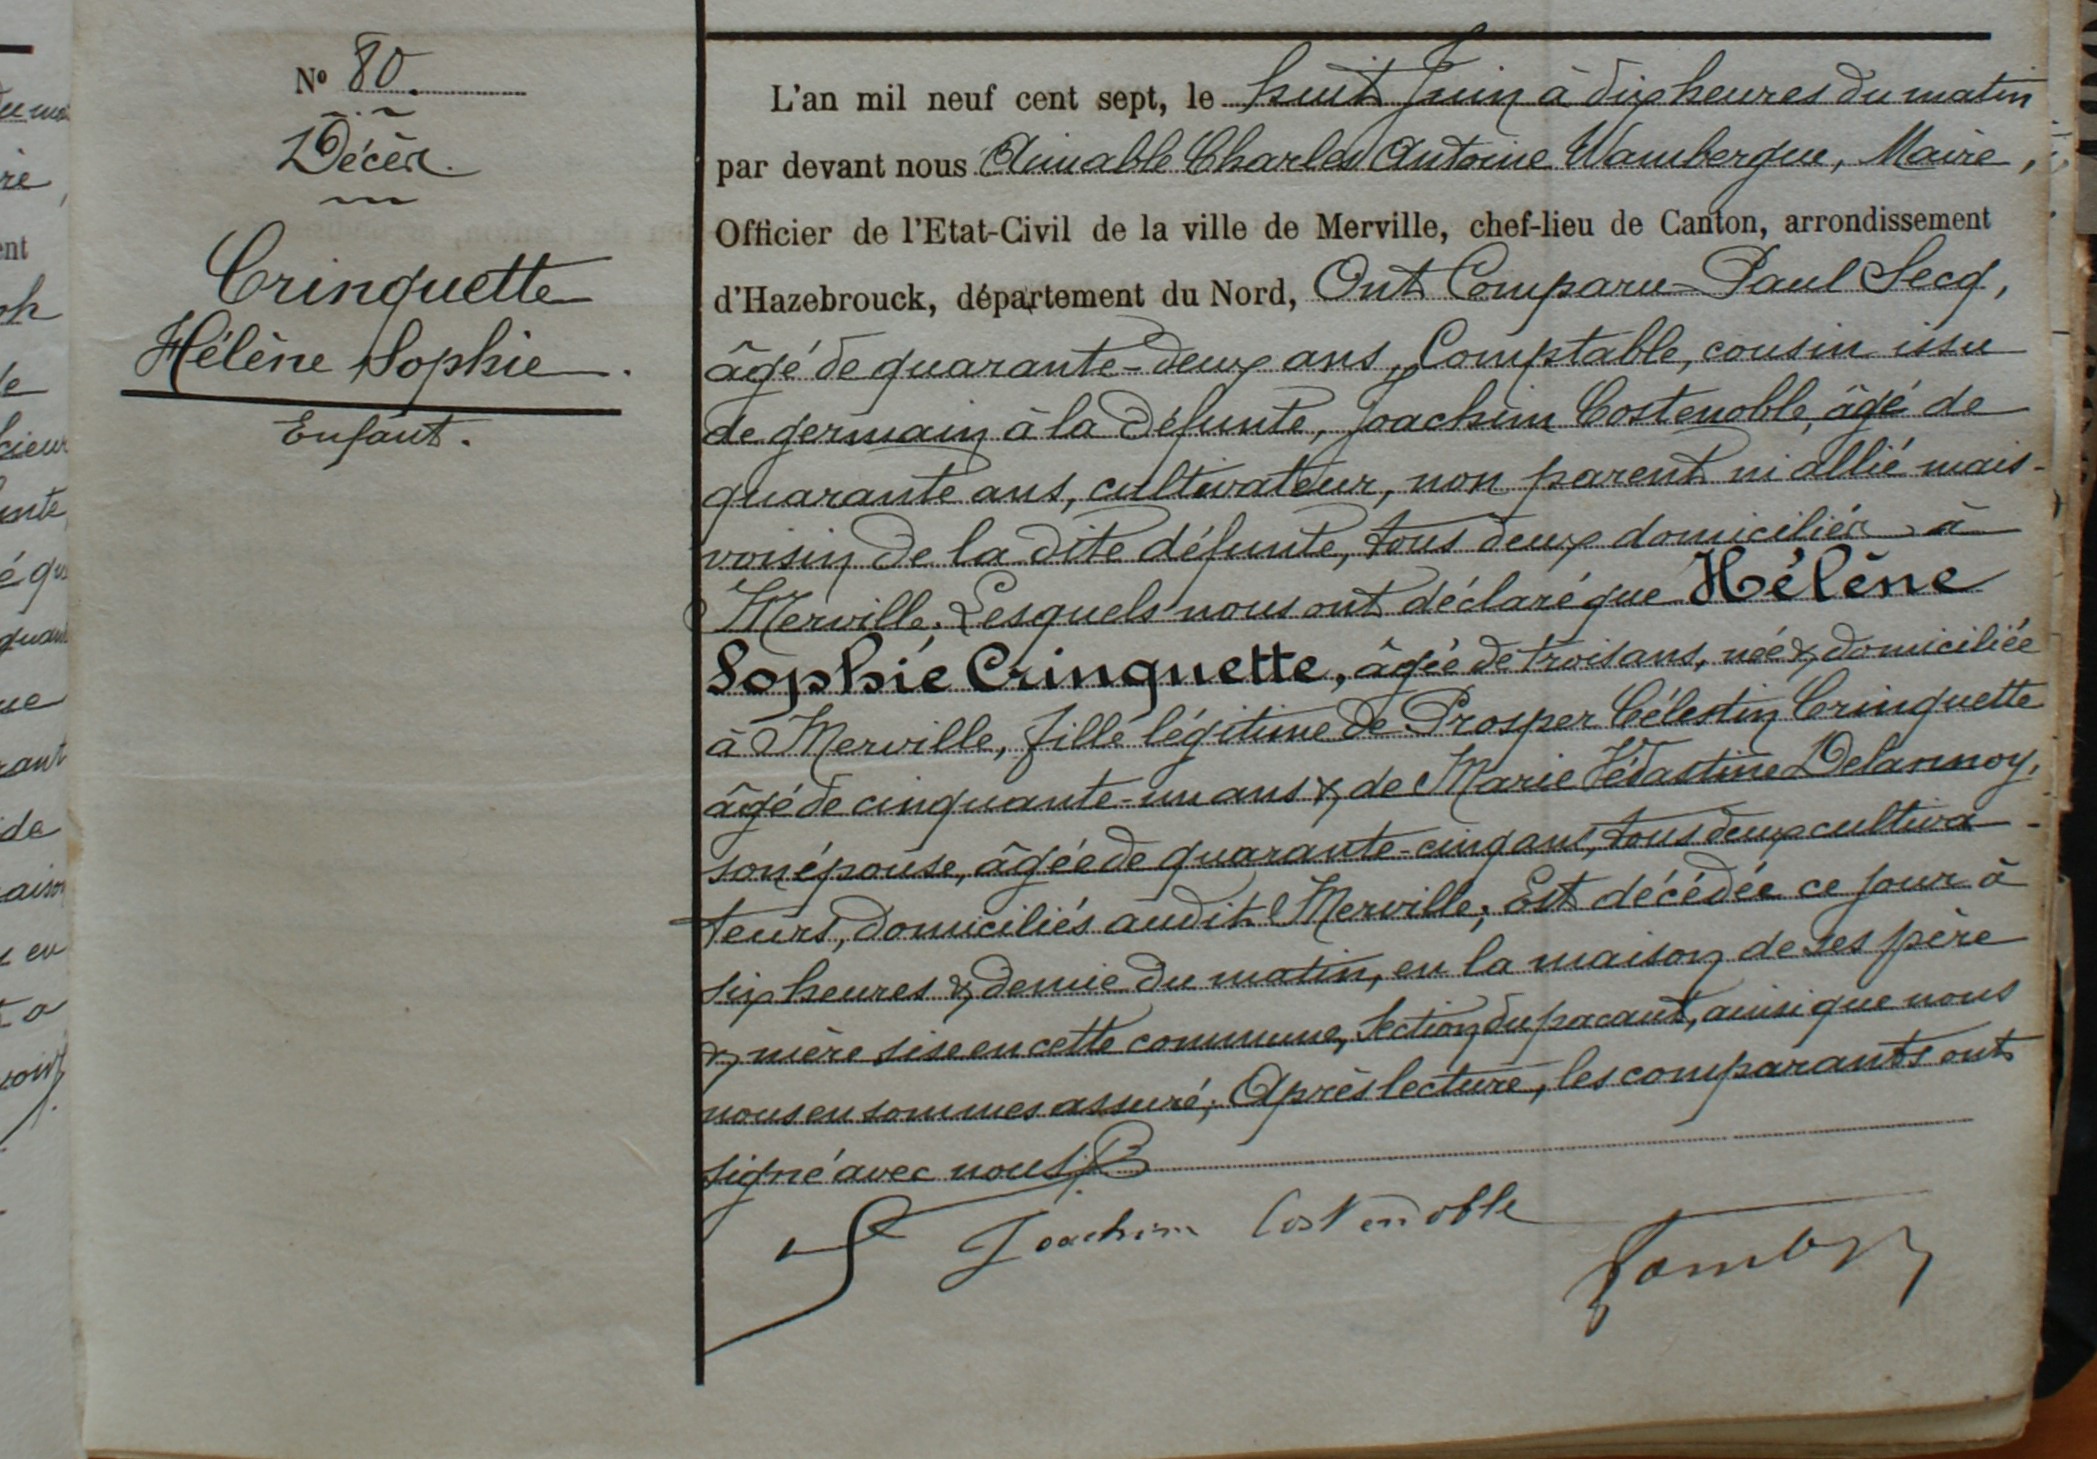 N° 80.
Décès.
Crinquette
Hélène Sophie.
Enfant.
L'an mil neuf cent sept, le huit Juin à dix heures du matin
par devant nous Aimable Charles Antoine Wambergue, Maire,
Officier de l'Etat-Civil de la ville de Merville, chef-lieu de Canton, arrondissement
d'Hazebrouck, département du Nord, Ont Comparu Paul Secq,
âgé de quarante-deux ans, Comptable, cousin issu
de germain à la défunte, Joachim Costenoble, âgé de
quarante ans, cultivateur, non parent ni allié mais
voisin de la dite défunte, tous deux domiciliés à
Merville. Lesquels nous ont déclaré que Hélène
Sophie Crinquette, âgée de trois ans, née & domiciliée
à Merville, fille légitime de Prosper Célestin Crinquette
âgé de cinquante-un ans & de Marie Védastine Delannoy,
son épouse, âgée de quarante-cinq ans, tous deux cultiva-
teurs, domiciliés audit Merville; Est décédée ce jour à
six heures & demie du matin, en la maison de ses père
& mère sise en cette commune, Section du pacaut, ainsi que nous
nous en sommes assuré; Après lecture, les comparants ont
signé avec nous.
Joachim Costenoble